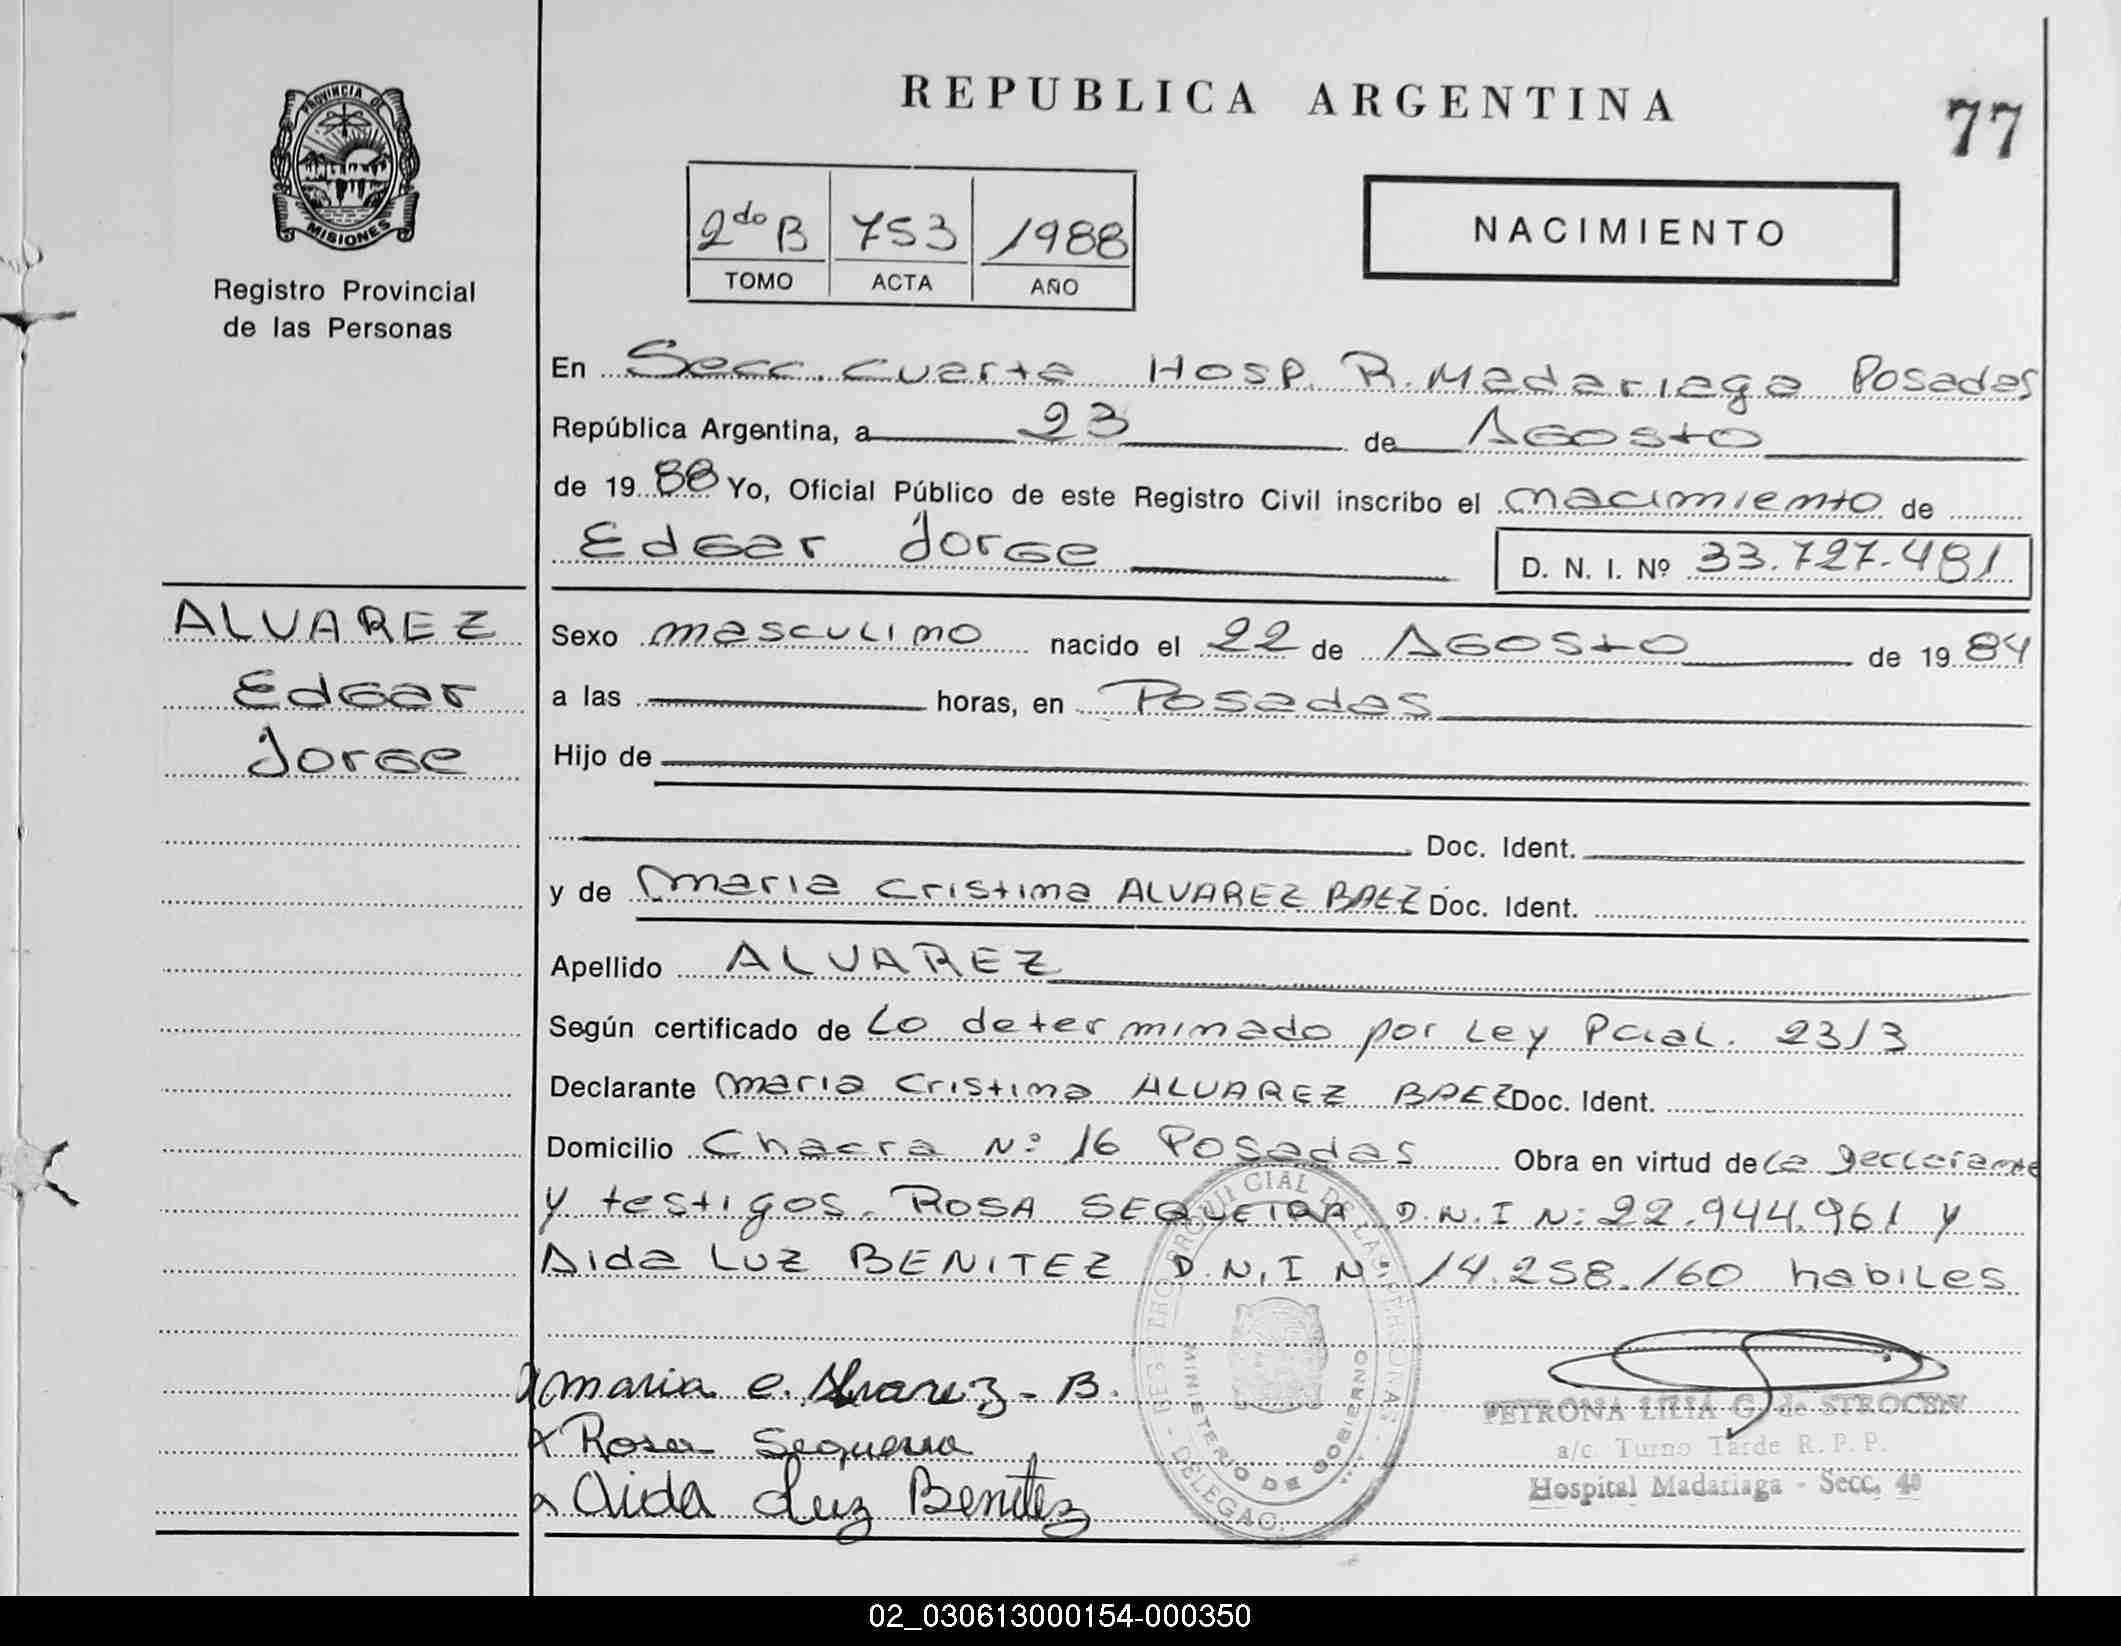 REPUBLICA ARGENTINA
77
PROVINCIA DE
MISIONES
Registro Provincial
de las Personas
2do B 753 1988
TOMO ACTA AÑO
NACIMIENTO
En Secc. Cuarta Hosp. R. Madariaga Posadas
República Argentina, a 23 de Agosto
de 1988 Yo, Oficial Público de este Registro Civil inscribo el nacimiento de
Edgar Jorge D. N. I. Nº 33.727.481
ALVAREZ
Edgar
Jorge
Sexo masculino nacido el 22 de Agosto de 1984
a las horas, en Posadas
Hijo de
Doc. Ident.
y de Maria Cristina ALVAREZ BAEZ Doc. Ident.
Apellido ALVAREZ
Según certificado de Lo determinado por Ley Pcial. 2313
Declarante Maria Cristina ALVAREZ BAEZ Doc. Ident.
Domicilio Chacra Nº 16 Posadas Obra en virtud de La Declarante
y testigos. ROSA SEQUEIRA D.N.I Nº 22.944.961 y
Aida LUZ BENITEZ D.N.I Nº 14.258.160 habiles
x Maria C. Alvarez - B.
x Rosa Sequeira
x Aida Luz Benitez
MINISTERIO DE GOBIERNO
DELEGAC.
PETRONA LILIA G. de STROCEN
a/c. Turno Tarde R. P. P.
Hospital Madariaga - Secc. 4ª
02_030613000154-000350